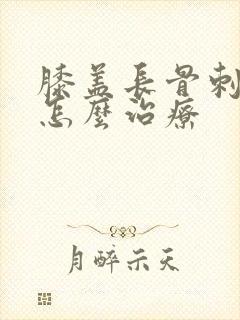 膝盖長骨刺
怎麼治療
月醉示天